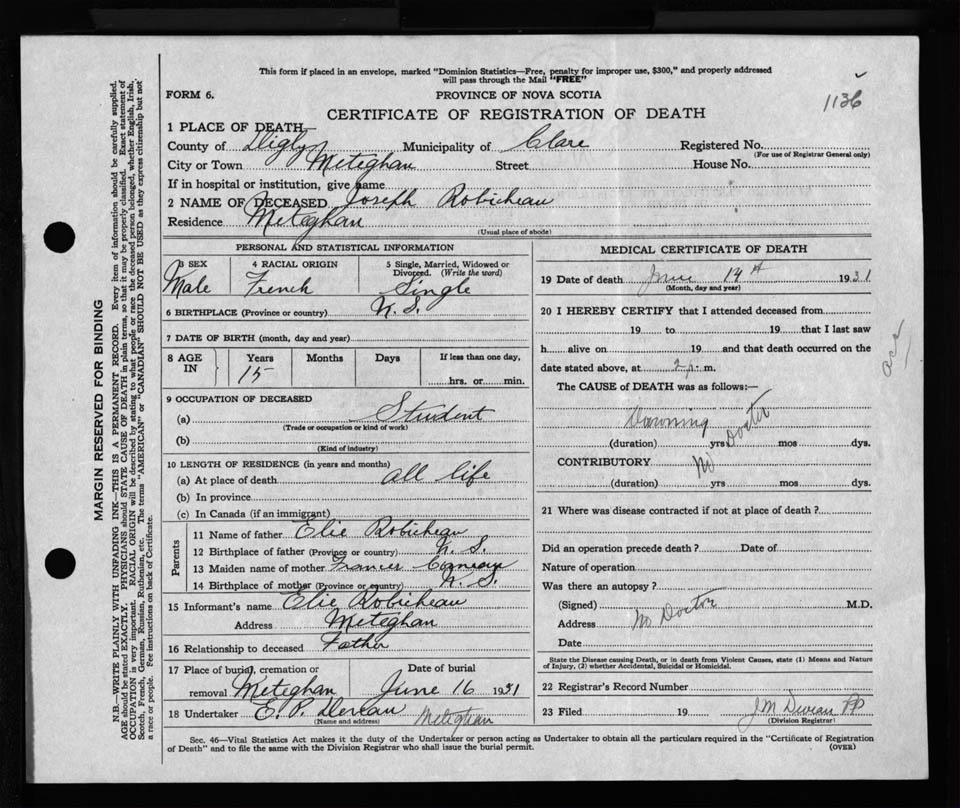 This form if placed in an envelope, marked "Dominion Statistics—Free, penalty for improper use, $300," and properly addressed
will pass through the Mail "FREE"
FORM 6.
PROVINCE OF NOVA SCOTIA
1136
CERTIFICATE OF REGISTRATION OF DEATH
1 PLACE OF DEATH—
County of Digby Municipality of Clare Registered No.
(For use of Registrar General only)
City or Town Meteghan Street House No.
If in hospital or institution, give name
2 NAME OF DECEASED Joseph Robicheau
Residence Meteghan
(Usual place of abode)
PERSONAL AND STATISTICAL INFORMATION
3 SEX 4 RACIAL ORIGIN 5 Single, Married, Widowed or
Divorced. (Write the word)
Male French Single
6 BIRTHPLACE (Province or country) N. S.
7 DATE OF BIRTH (month, day and year)
8 AGE IN Years Months Days If less than one day,
15 hrs. or min.
9 OCCUPATION OF DECEASED
(a) Student
(Trade or occupation or kind of work)
(b)
(Kind of industry)
10 LENGTH OF RESIDENCE (in years and months)
(a) At place of death all life
(b) In province
(c) In Canada (if an immigrant)
Parents
11 Name of father Elie Robicheau
12 Birthplace of father (Province or country) N. S.
13 Maiden name of mother
14 Birthplace of mother (Province or country) N. S.
15 Informant's name Elie Robicheau
Address Meteghan
16 Relationship to deceased Father
17 Place of burial, cremation or Date of burial
removal Meteghan June 16 1931
18 Undertaker E. P. Meteghan
(Name and address)
MEDICAL CERTIFICATE OF DEATH
19 Date of death June 14th 1931
(Month, day and year)
20 I HEREBY CERTIFY that I attended deceased from
19 to 19 that I last saw
h alive on 19 and that death occurred on the
date stated above, at 2 p. m.
The CAUSE of DEATH was as follows:—
Drowning
(duration) yrs mos dys.
CONTRIBUTORY No Doctor
(duration) yrs mos dys.
21 Where was disease contracted if not at place of death?
Did an operation precede death? Date of
Nature of operation
Was there an autopsy?
(Signed) M.D.
Address No Doctor
Date
State the Disease causing Death, or in death from Violent Causes, state (1) Means and Nature
of Injury, (2) whether Accidental, Suicidal or Homicidal.
22 Registrar's Record Number
23 Filed 19 J M
(Division Registrar)
acc
Sec. 46—Vital Statistics Act makes it the duty of the Undertaker or person acting as Undertaker to obtain all the particulars required in the "Certificate of Registration
of Death" and to file the same with the Division Registrar who shall issue the burial permit.
(OVER)
MARGIN RESERVED FOR BINDING
N.B.—WRITE PLAINLY WITH UNFADING INK—THIS IS A PERMANENT RECORD. Every item of information should be carefully supplied.
AGE should be stated EXACTLY. PHYSICIANS should STATE CAUSE OF DEATH in plain terms, so that it may be properly classified. Exact statement of
OCCUPATION is very important. RACIAL ORIGIN will be described by stating to what people or race the deceased person belonged, whether English, Irish,
Scotch, French, German, Russian, Ruthenian, etc. The terms "AMERICAN" or "CANADIAN" SHOULD NOT BE USED as they express citizenship but not
a race or people. Fee instructions on back of Certificate.